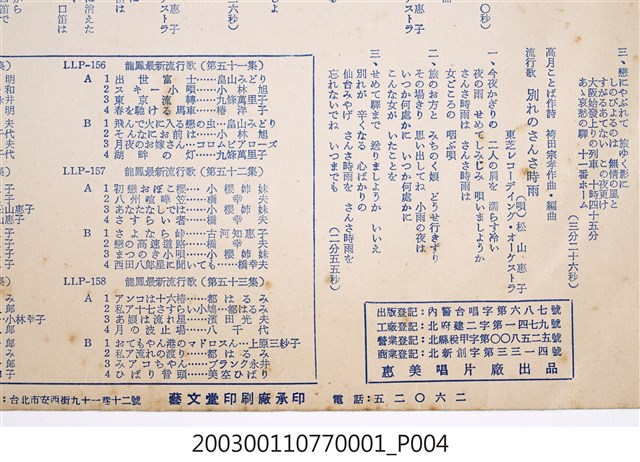 三、戀にやぶれて　旅ゆく影に
しのびよるのは　無情の風と
すがるあなたの　この夜更け
大阪始發上りの列車　十時四十五分
あゝ哀愁の驛　十一番ホーム
（三分二十六秒）
高月ことば作詩　袴田宗孝作曲・編曲
流行歌　別れのさんさ時雨
（唄）松山惠子
東芝レコーディング・オーケストラ
一、今夜かぎりの　二人の肩を　濡らす冷い
夜の雨　せめてしみじみ　唄いましようか
さんさ時雨は　さんさ時雨は
女ごころの　咽ぶ唄
二、旅のお方に　みちのく娘　どうせ行きずり
その場きり　思い出してね　小雨の夜は
いつか何處かに　いつか何處かに
こんな女が　いたことを
三、せめて驛まで　送りましようか　いいえ
別れが　辛くなる　心ばかりの
仙台みやげ　さんさ時雨を　さんさ時雨を
忘れないでね　いつまでも
（二分五五秒）
LLP-156　龍鳳最新流行歌（第五十一集）
A 1 出世富士……畠山みどり
2 スキー小唄……小林旭
3 東京流轉……九條萬里子
4 春を馳ける馬車……椿洋子
B 1 飛んで火に入る戀の虫…畠山みどり
2 そんなにお前は……小林旭
3 月夜のお嫁さん…コロムビアローズ
4 湖畔の灯……九條萬里子
LLP-157　龍鳳最新流行歌（第五十二集）
A 1 初戀おぼこ櫻…小櫻姉妹
2 八州喧嘩笠……橋幸夫
3 あなたなしでは…小櫻姉妹
4 さすらい笛……橋幸夫
B 1 さよなら峠……古河知惠子
2 戀の高速道路……橋幸夫
3 まつのき小唄…小櫻姉妹
4 西田八郎星に聞いても…橋幸夫
LLP-158　龍鳳最新流行歌（第五十三集）
A 1 アンコは十六椿……都はるみ
2 私ア十七さすらい小鳩…都はるみ
3 あ娘は流れ星……濱田光夫
4 月の波止場……八千代
B 1 おてもやん港のマドロスん…上原三紗子
2 私ア流れの渡り……都はるみ
3 みアコちやん……ブランク永井
4 ひばり音頭……美空ひばり
出版登記：內警台唱字第六八七號
工廠登記：北府建二字第一四七九號
營業登記：北縣稅甲字第〇〇八五二五號
商業登記：北新創字第三三一四號
惠美唱片廠出品
：台北市安西街九十一巷十二號　藝文堂印刷廠承印　電話：五二〇六二
200300110770001_P004